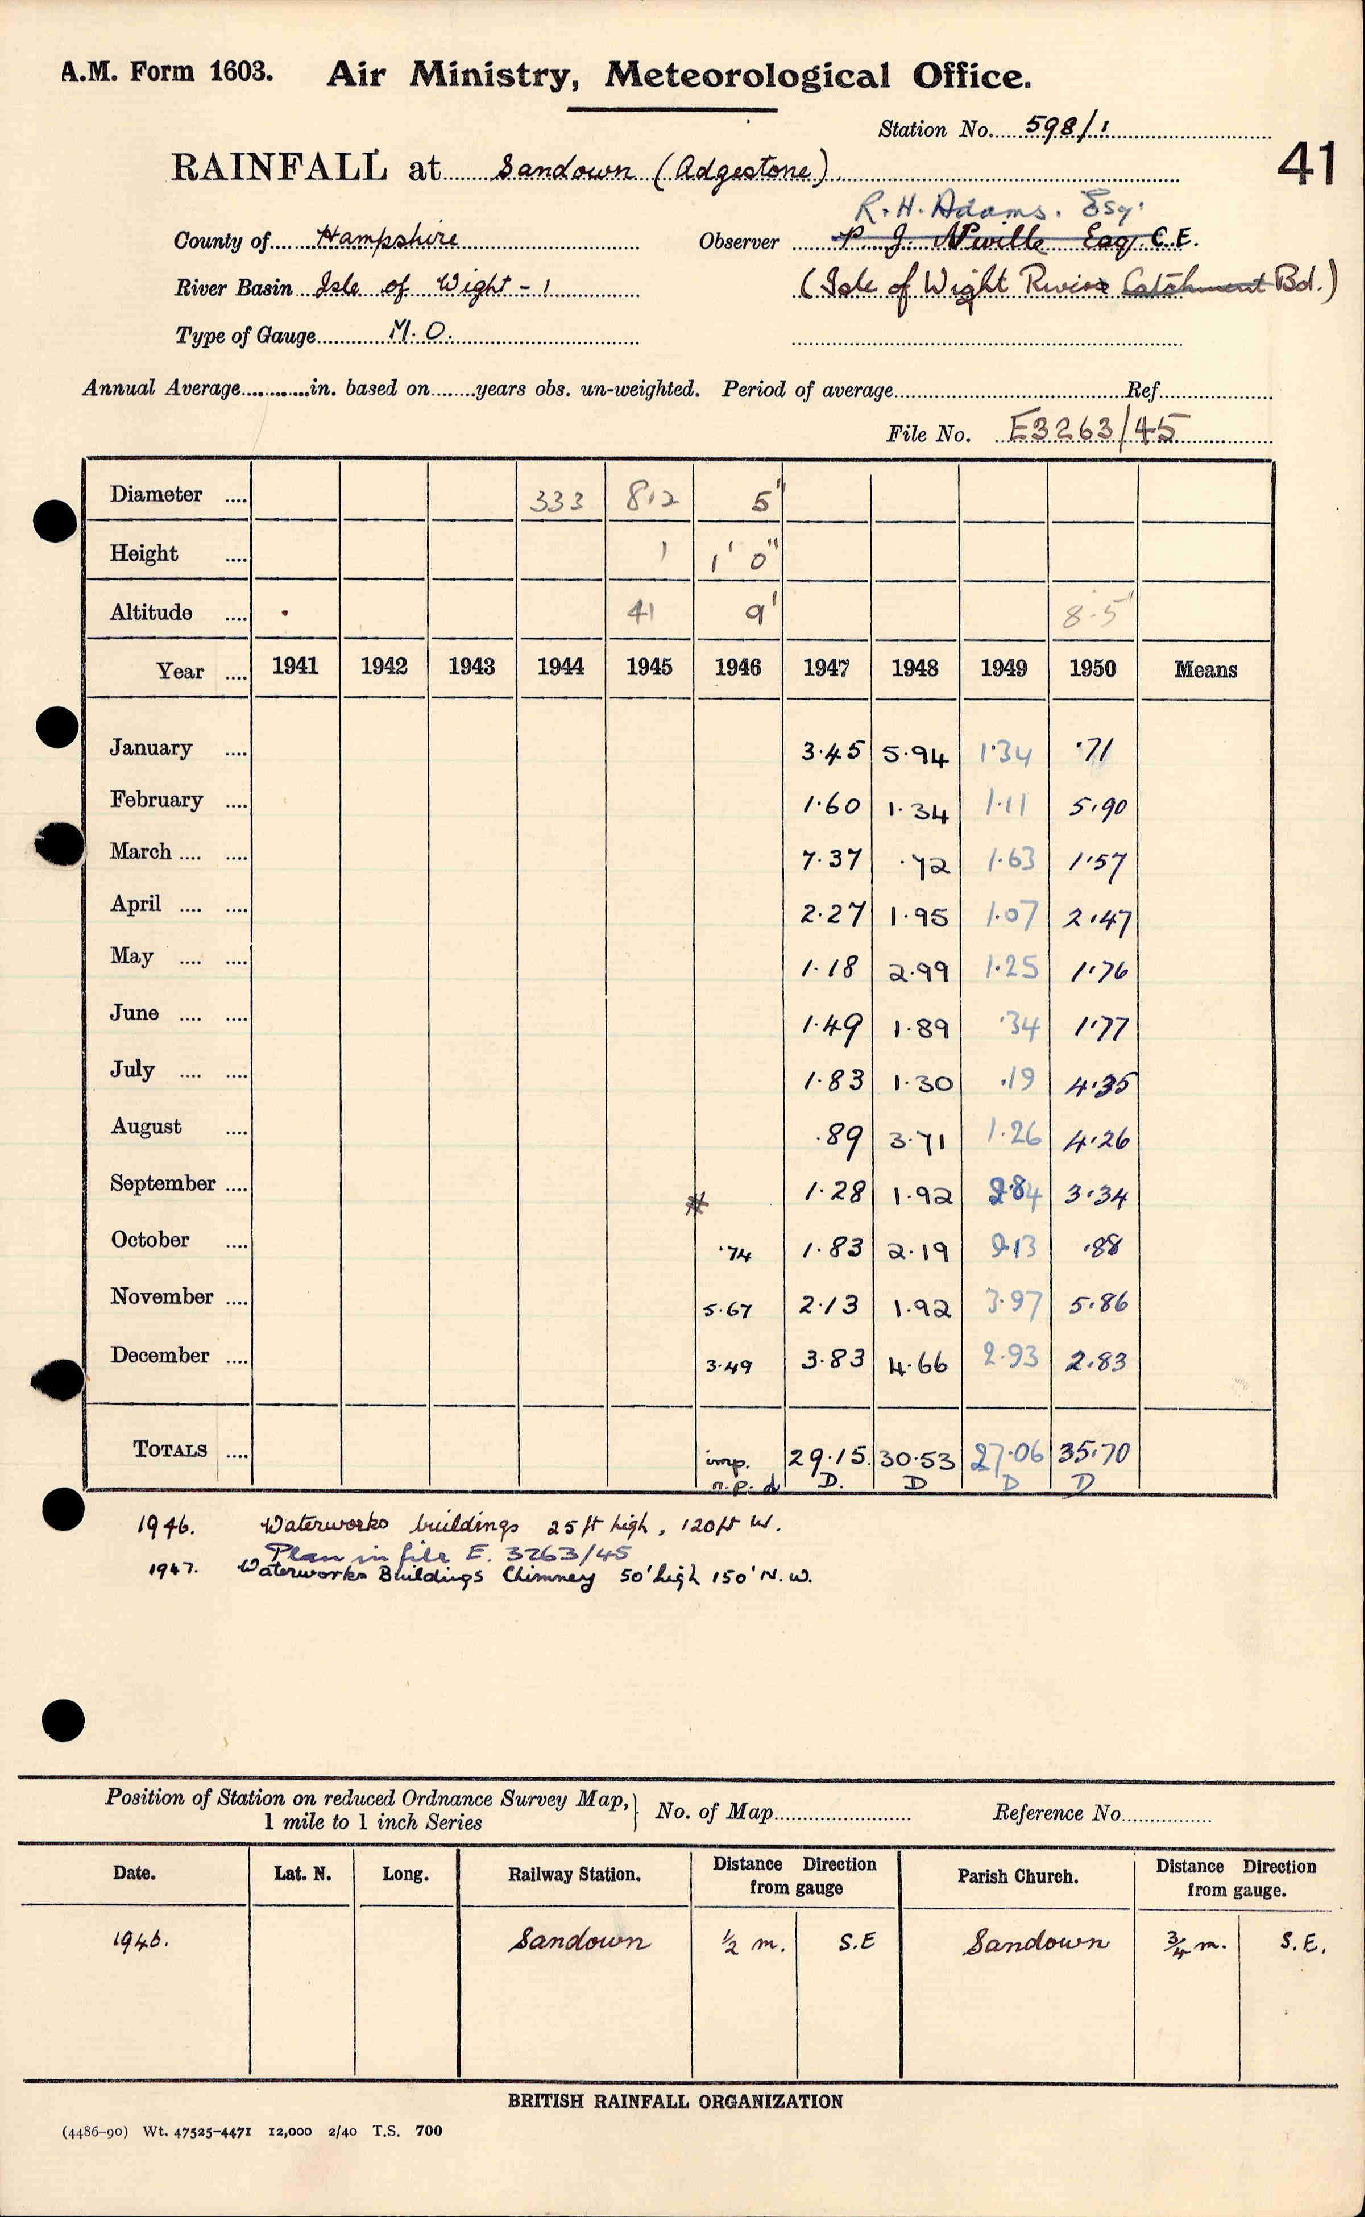 A.M. Form 1603. Air Ministry, Meteorological Office.
Station No. 598/1
41
RAINFALL at Sandown (Adgestone)
R. H. Adams. Esq.
County of Hampshire Observer P. J. Neville Esq. C.E.
River Basin Isle of Wight - 1 (Isle of Wight Rivers Catchment Bd.)
Type of Gauge M.O.
Annual Average............in. based on.......years obs. un-weighted. Period of average........Ref.......
File No. E3263/45
Diameter .... 333 8.2 5"
Height .... 1 1' 0"
Altitude .... 41 9' 8.5'
Year .... 1941 1942 1943 1944 1945 1946 1947 1948 1949 1950 Means
January .... 3.45 5.94 1.34 .71
February .... 1.60 1.34 1.11 5.90
March .... .... 7.37 .72 1.63 1.57
April .... .... 2.27 1.95 1.07 2.47
May .... .... 1.18 2.99 1.25 1.76
June .... .... 1.49 1.89 .34 1.77
July .... .... 1.83 1.30 .19 4.35
August .... .89 3.71 1.26 4.26
September .... 1.28 1.92 2.84 3.34
October .... .74 1.83 2.19 9.13 .88
November .... 5.67 2.13 1.92 3.97 5.86
December .... 3.49 3.83 4.66 2.93 2.83
TOTALS .... imp. 29.15 30.53 27.06 35.70
n.p.d D. D D D
1946. Waterworks buildings 25 ft high, 120ft W.
Plan in file E. 3263/45
1947. Waterworks Buildings Chimney 50' high 150' N.W.
Position of Station on reduced Ordnance Survey Map, 1 mile to 1 inch Series No. of Map........ Reference No........
Date. Lat. N. Long. Railway Station. Distance Direction from gauge Parish Church. Distance Direction from gauge.
1946. Sandown ½ m. S.E Sandown ¾ m. S.E.
BRITISH RAINFALL ORGANIZATION
(4486–90) Wt. 47525–4471 12,000 2/40 T.S. 700